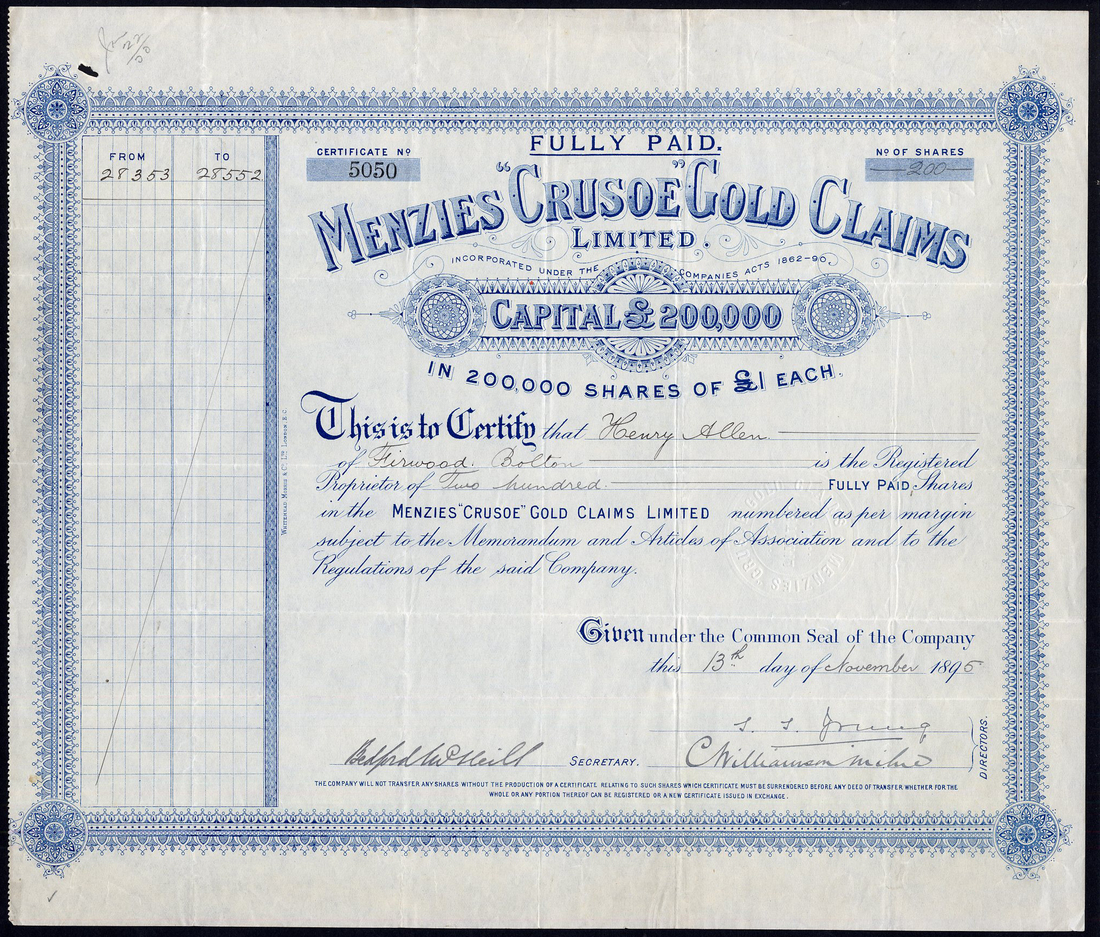 FROM TO
28353 28552
CERTIFICATE Nº
5050
FULLY PAID.
Nº OF SHARES
200
MENZIES "CRUSOE" GOLD CLAIMS
LIMITED.
INCORPORATED UNDER THE COMPANIES ACTS 1862-90.
CAPITAL £200,000
IN 200,000 SHARES OF £1 EACH.
This is to Certify that Henry Allen
of Firwood. Bolton is the Registered
Proprietor of Two hundred FULLY PAID Shares
in the MENZIES "CRUSOE" GOLD CLAIMS LIMITED numbered as per margin
subject to the Memorandum and Articles of Association and to the
Regulations of the said Company.
Given under the Common Seal of the Company
this 13th day of November 1895
Bedford McNeill SECRETARY.
C Williamson Milne
DIRECTORS.
THE COMPANY WILL NOT TRANSFER ANY SHARES WITHOUT THE PRODUCTION OF A CERTIFICATE RELATING TO SUCH SHARES WHICH CERTIFICATE MUST BE SURRENDERED BEFORE ANY DEED OF TRANSFER WHETHER FOR THE
WHOLE OR ANY PORTION THEREOF CAN BE REGISTERED OR A NEW CERTIFICATE ISSUED IN EXCHANGE.
WHITEHEAD MORRIS & Cº LTD LONDON. E.C.